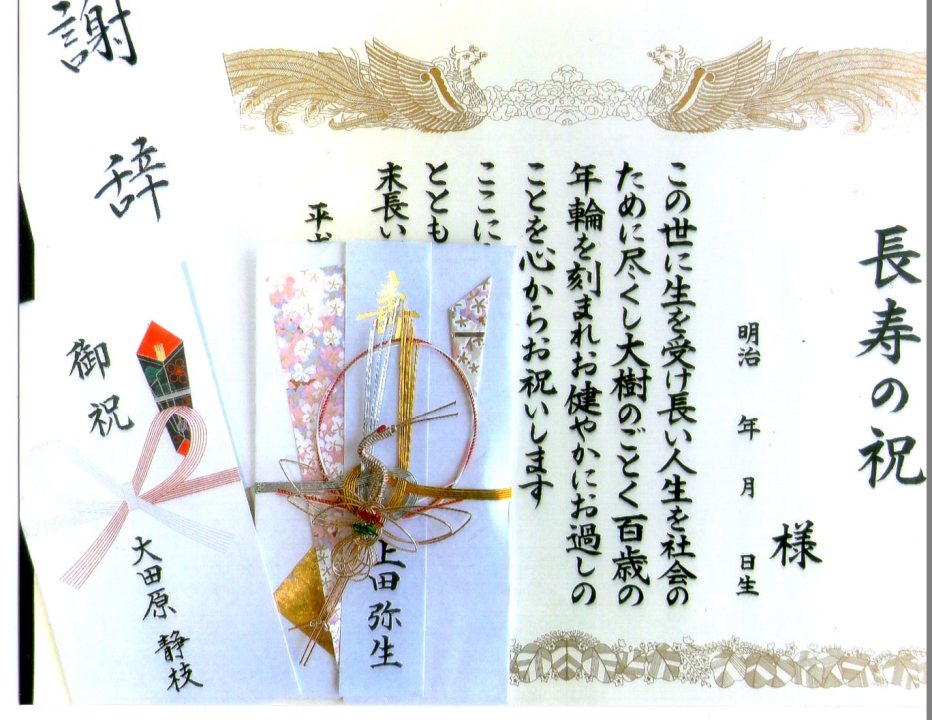 長寿の祝
様
明治 年 月 日生
この世に生を受け長い人生を社会の
ために尽くし大樹のごとく百歳の
年輪を刻まれお健やかにお過しの
ことを心からお祝いします
ここに
ととも
末長い
平成
寿
上田弥生
謝辞
御祝
大田原 静枝